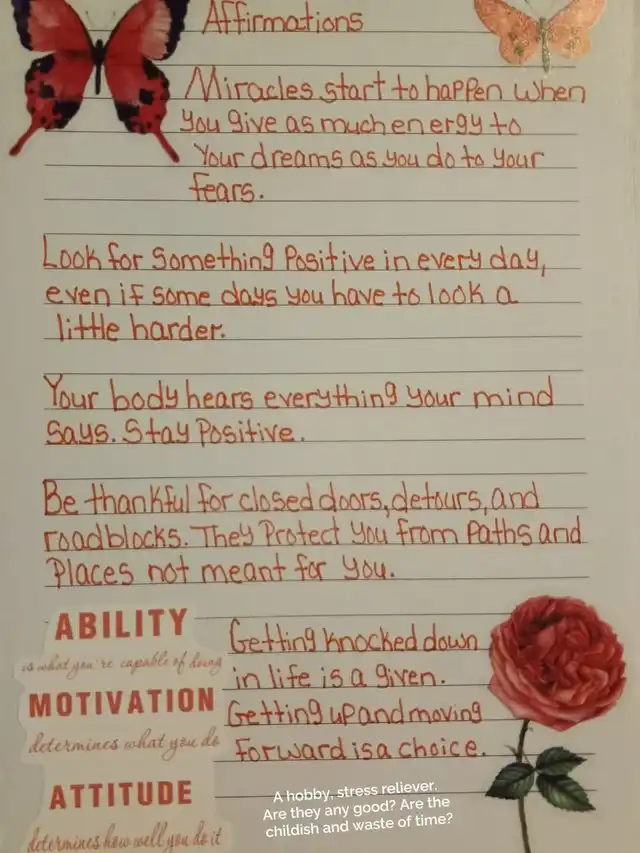 Affirmations
Miracles start to happen when
you give as much energy to
your dreams as you do to your
fears.
Look for something Positive in every day,
even if some days you have to look a
little harder.
Your body hears everything your mind
says. Stay Positive.
Be thankful for closed doors, detours, and
roadblocks. They Protect you from Paths and
Places not meant for you.
ABILITY
is what you're capable of doing
MOTIVATION
determines what you do
ATTITUDE
determines how well you do it
Getting knocked down
in life is a given.
Getting up and moving
forward is a choice.
A hobby, stress reliever.
Are they any good? Are the
childish and waste of time?